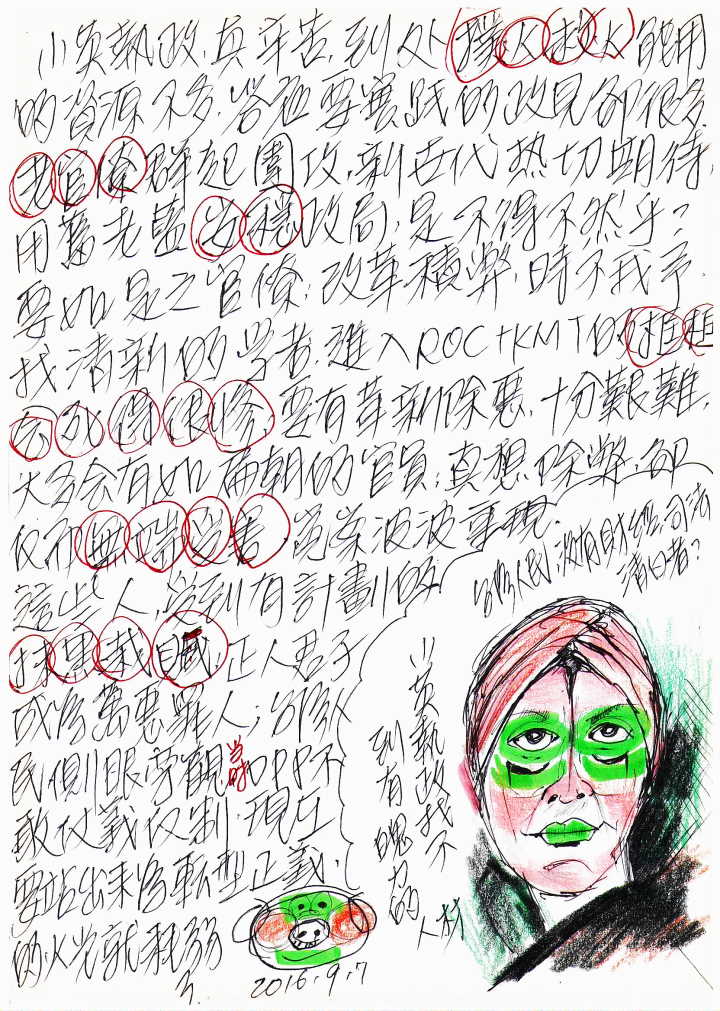 小英執政,真辛苦,到処 撲火救火 能用
的資源不多,答應要實踐的政見卻很多,
老官僚群起圍攻,新世代热切期待,
用舊老藍安穩政局,是不得不然乎?
要如是之官僚;改革積弊,時不我予
找清新的學者,進入ROC+KMT的框框
会死得很慘,要有革新除惡,十分艱難,
大多会有如 扁朝的官員;真想除弊,卻
仅而無端 受害 冤案波波重現.
這些人,受到有計劃的
抹黑栽贓,正人君子
成為萬惡罪人;台灣人
民側眼旁觀當時DPP不
敢仗義仅制,現在
要站出來為転型正義,
的火光就耗弱
了.
2016.9.7
台灣人民,没有財經,司法
清白者?
小英執政找不
到有魄力的
人材